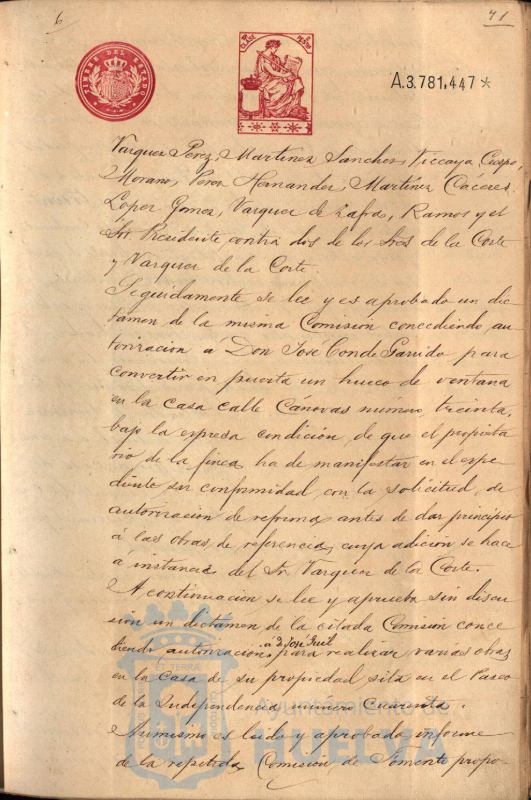 6
71
TIMBRE DEL ESTADO
A.3.781,447*
Vazquez Perez, Martinez Sanchez, Vizcaya, Crespo,
Morano, Perez Hernandez, Martínez, Cáceres,
López Gomez, Vazquez de Zafra, Ramos y el
Sr. Presidente contra dos de los Sres de la Corte
y Vazquez de la Corte.
Seguidamente se lee y es aprobado un dic
támen de la misma Comisión concediendo au
torización á Don José Conde Garrido para
convertir en puerta un hueco de ventana
en la casa calle Cánovas número treinta,
bajo la expresa condición, de que el propieta
rio de la finca, ha de manifestar en el espe
diente su conformidad, con la solicitud, de
autorización de reforma, antes de dar principio
á las obras, de referencia, cuya adición se hace
á instancia del Sr. Vazquez de la Corte.
A continuación se lee y aprueba sin discu
sión un dictámen de la citada Comisión conce
diendo autorización á D. José Guil para realizar varias obras
en la Casa de su propiedad sita en el Paseo
de la Independencia número cuarenta.
Asimismo es leido y aprobado informe
de la repetida Comisión, de Fomento propo
ET TERRAE
Ayuntamiento de
HUELVA